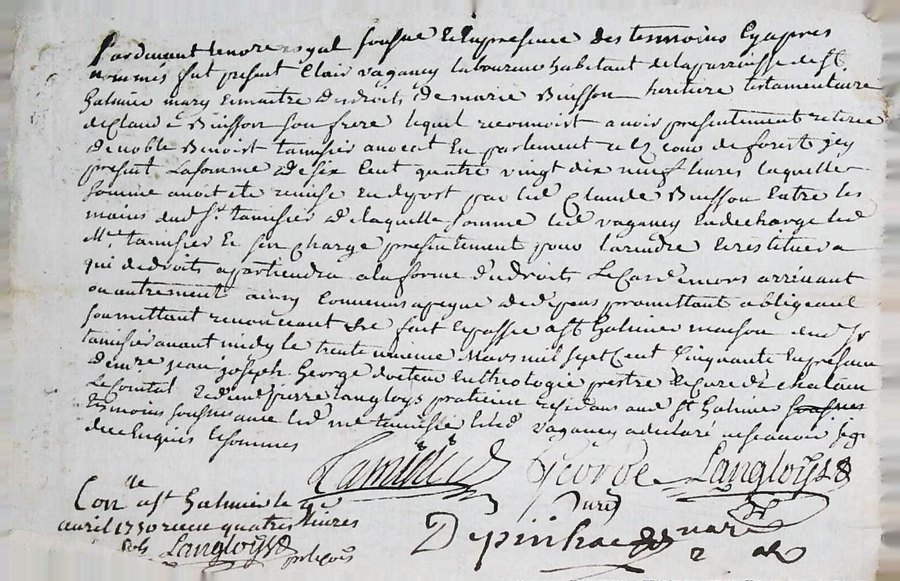 Pardevant le no.re royal sousigné et en presence des tesmoins cy apres
nommés fut present Clair vaganey laboureur habitant de la parroisse de st
Galmier mary et maitre des droits de marie Buisson heritiere testamentaire
de Claude Buisson son frere lequel reconnoit avoir presentement retirée
de noble Benoist tamisier avocat en parlement et es cour de forest jcy
present La somme de six cent quatre vingt dix neuf livres laquelle
somme avoit été remise en depost par led Claude Buisson entre les
mains dud Sr tamisier de laquelle somme led vaganey en decharge led
Me tamisier et s'en charge presentement pour la rendre et restituer a
qui de droits apartiendra a la forme du droits le cas de mors arrivant
ou autrement ainsy Convenus a peyne de d pans promettant obligeant
soumettant renonceant &c fait et passé a st Galmier maison dud Sr
tamisier avant midy le trente unieme Mars mil sept Cent Cinquante en presence
de mre jean joseph George docteur en theologie prestre et curé de chalain
Le Comtal et de me pierre langloys praticien residans aud st Galmier
tesmoins sousignés avec led me tamisier et led vaganey a declaré ne scavoir sign
de ce enquis et sommés
Tamisier George Langloys
curé
Con.lle a st Galmier le
avril 1750 receu quatre livres
sols Langloys
Depinhac no.re